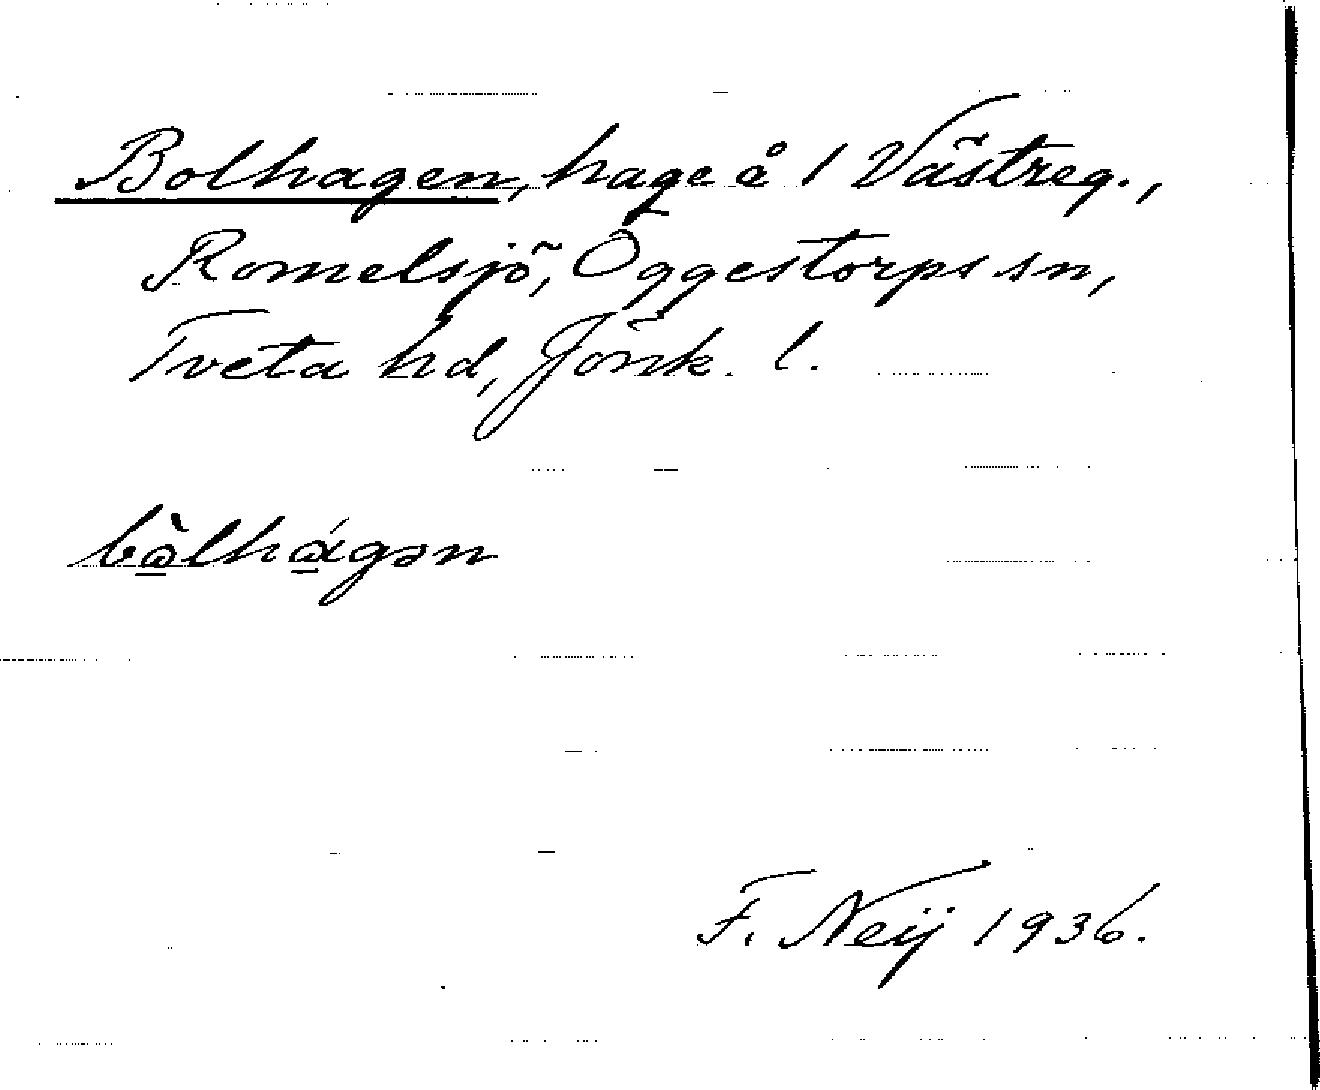 Bolhagen, hage å 1 Västreg.,
Romelsjö, Öggestorps sn,
Tveta hd, Jönk. l.
bὰlhágən
F. Neij 1936.